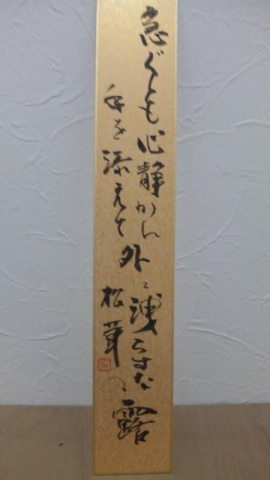 急ぐとも心静かに
手を添えて外に洩らすな
松茸の露